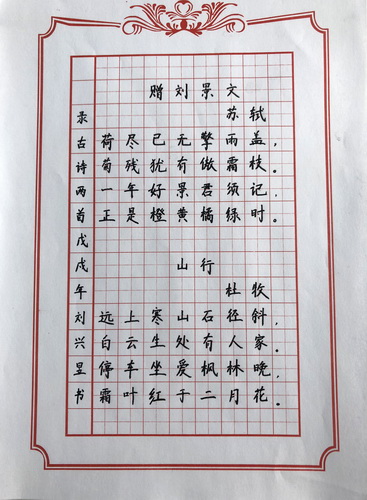 赠刘景文
苏轼
荷尽已无擎雨盖，
菊残犹有傲霜枝。
一年好景君须记，
正是橙黄橘绿时。
山行
杜牧
远上寒山石径斜，
白云生处有人家。
停车坐爱枫林晚，
霜叶红于二月花。
录古诗两首戊戌年刘兴昱书